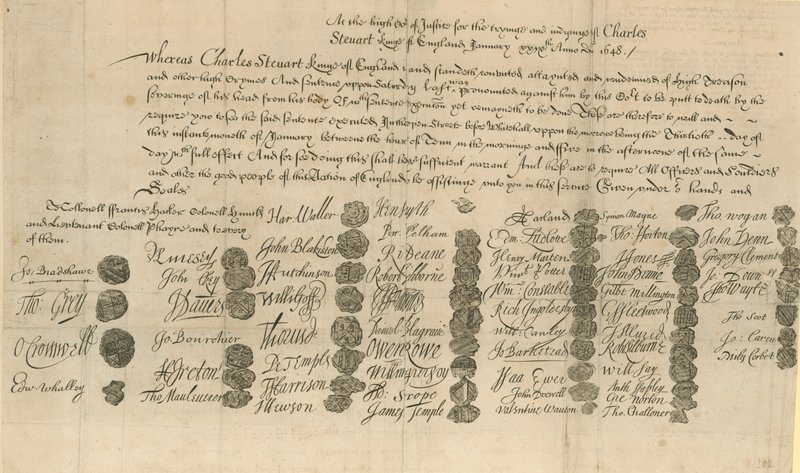 At the high Cot of Justice for the tryinge and iudginge of Charles
Steuart Kinge of England January xxixth Anno Dni 1648./
Whereas Charles Steuart Kinge of England is and standeth convicted attaynted and condemned of High Treason
and other high Crymes And sentence uppon Saturday last was pronounced against him by this Cort to be putt to death by the
severinge of his head from his body Of wch sentence execucon yet remayneth to be done These are therefore to will and
require you to see the said sentence executed In the open Streete before Whitehall uppon the morrowe being the Thirtieth day of
this instante moneth of January betweene the houres of Tenn in the morninge and ffive in the afternoone of the same
day wth full effect And for soe doing this shall be sufficient warrant And these are to require All Officers and Souldiers
and other the good people of this Nation of England to be assistinge unto you in this service Given under or hands and
Seales
To Collonell ffrancis Hacker Colonell Huncks
and Lieutenant Colonell Phayre and to every
of them.
Jo. Bradshawe
Tho: Grey
O Cromwell
Edw. Whalley
John
J Danvers
Jo. Bourchier
H Ireton
Tho Mauleverer
Har. Waller
John Blakiston
J Hutchinson
Willi Goff
T Pride
Pe Temple
T Harrison
J Hewson
Hen Smyth
Per. Pelham
Ri Deane
Robert Tichborne
Daniel Blagrave
Owen Rowe
Ad: Scrope
James Temple
A Garland
Edm. Ludlowe
Henry Marten
Vinct Potter
Wm. Constable
Rich Ingoldesby
Will: Cawley
Jo Barkstead
Isaa Ewer
John Dixwell
Valentine Wauton
Symon Mayne
Tho Horton
J Jones
John Moore
Gilbt Millington
G Fleetwood
J Alured
Rob Lilburne
Will Say
Anth Stapley
Gre Norton
Tho. Challoner
Tho. Wogan
John Venn
Gregory Clement
Jo: Downes
Tho Wayte
Tho Scot
Jo: Carew
Miles Corbet
302